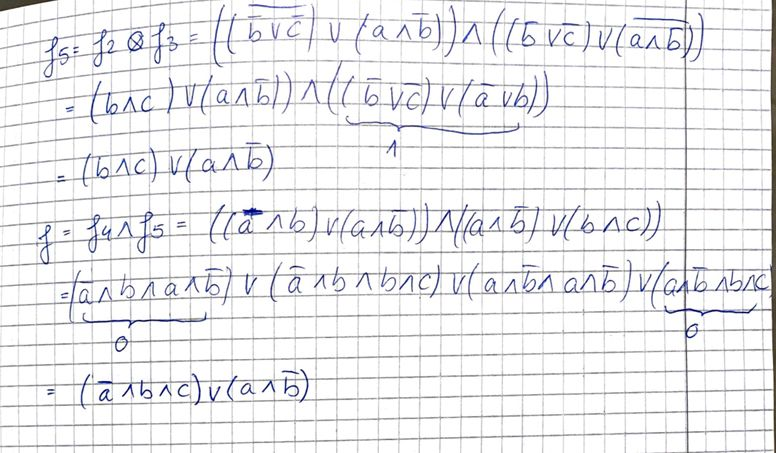 f₅ = f₂ ⊗ f₃ = ((\overline{b̄ ∨ c̄}) ∨ (a ∧ b̄)) ∧ ((b̄ ∨ c̄) ∨ (\overline{a ∧ b̄}))
= (b ∧ c) ∨ (a ∧ b̄)) ∧ ((b̄ ∨ c̄) ∨ (ā ∨ b))
1
= (b ∧ c) ∨ (a ∧ b̄)
f = f₄ ∧ f₅ = ((ā ∧ b) ∨ (a ∧ b̄)) ∧ ((a ∧ b̄) ∨ (b ∧ c))
= (ā ∧ b ∧ a ∧ b̄) ∨ (ā ∧ b ∧ b ∧ c) ∨ (a ∧ b̄ ∧ a ∧ b̄) ∨ (a ∧ b̄ ∧ b ∧ c
0 0
= (ā ∧ b ∧ c) ∨ (a ∧ b̄)